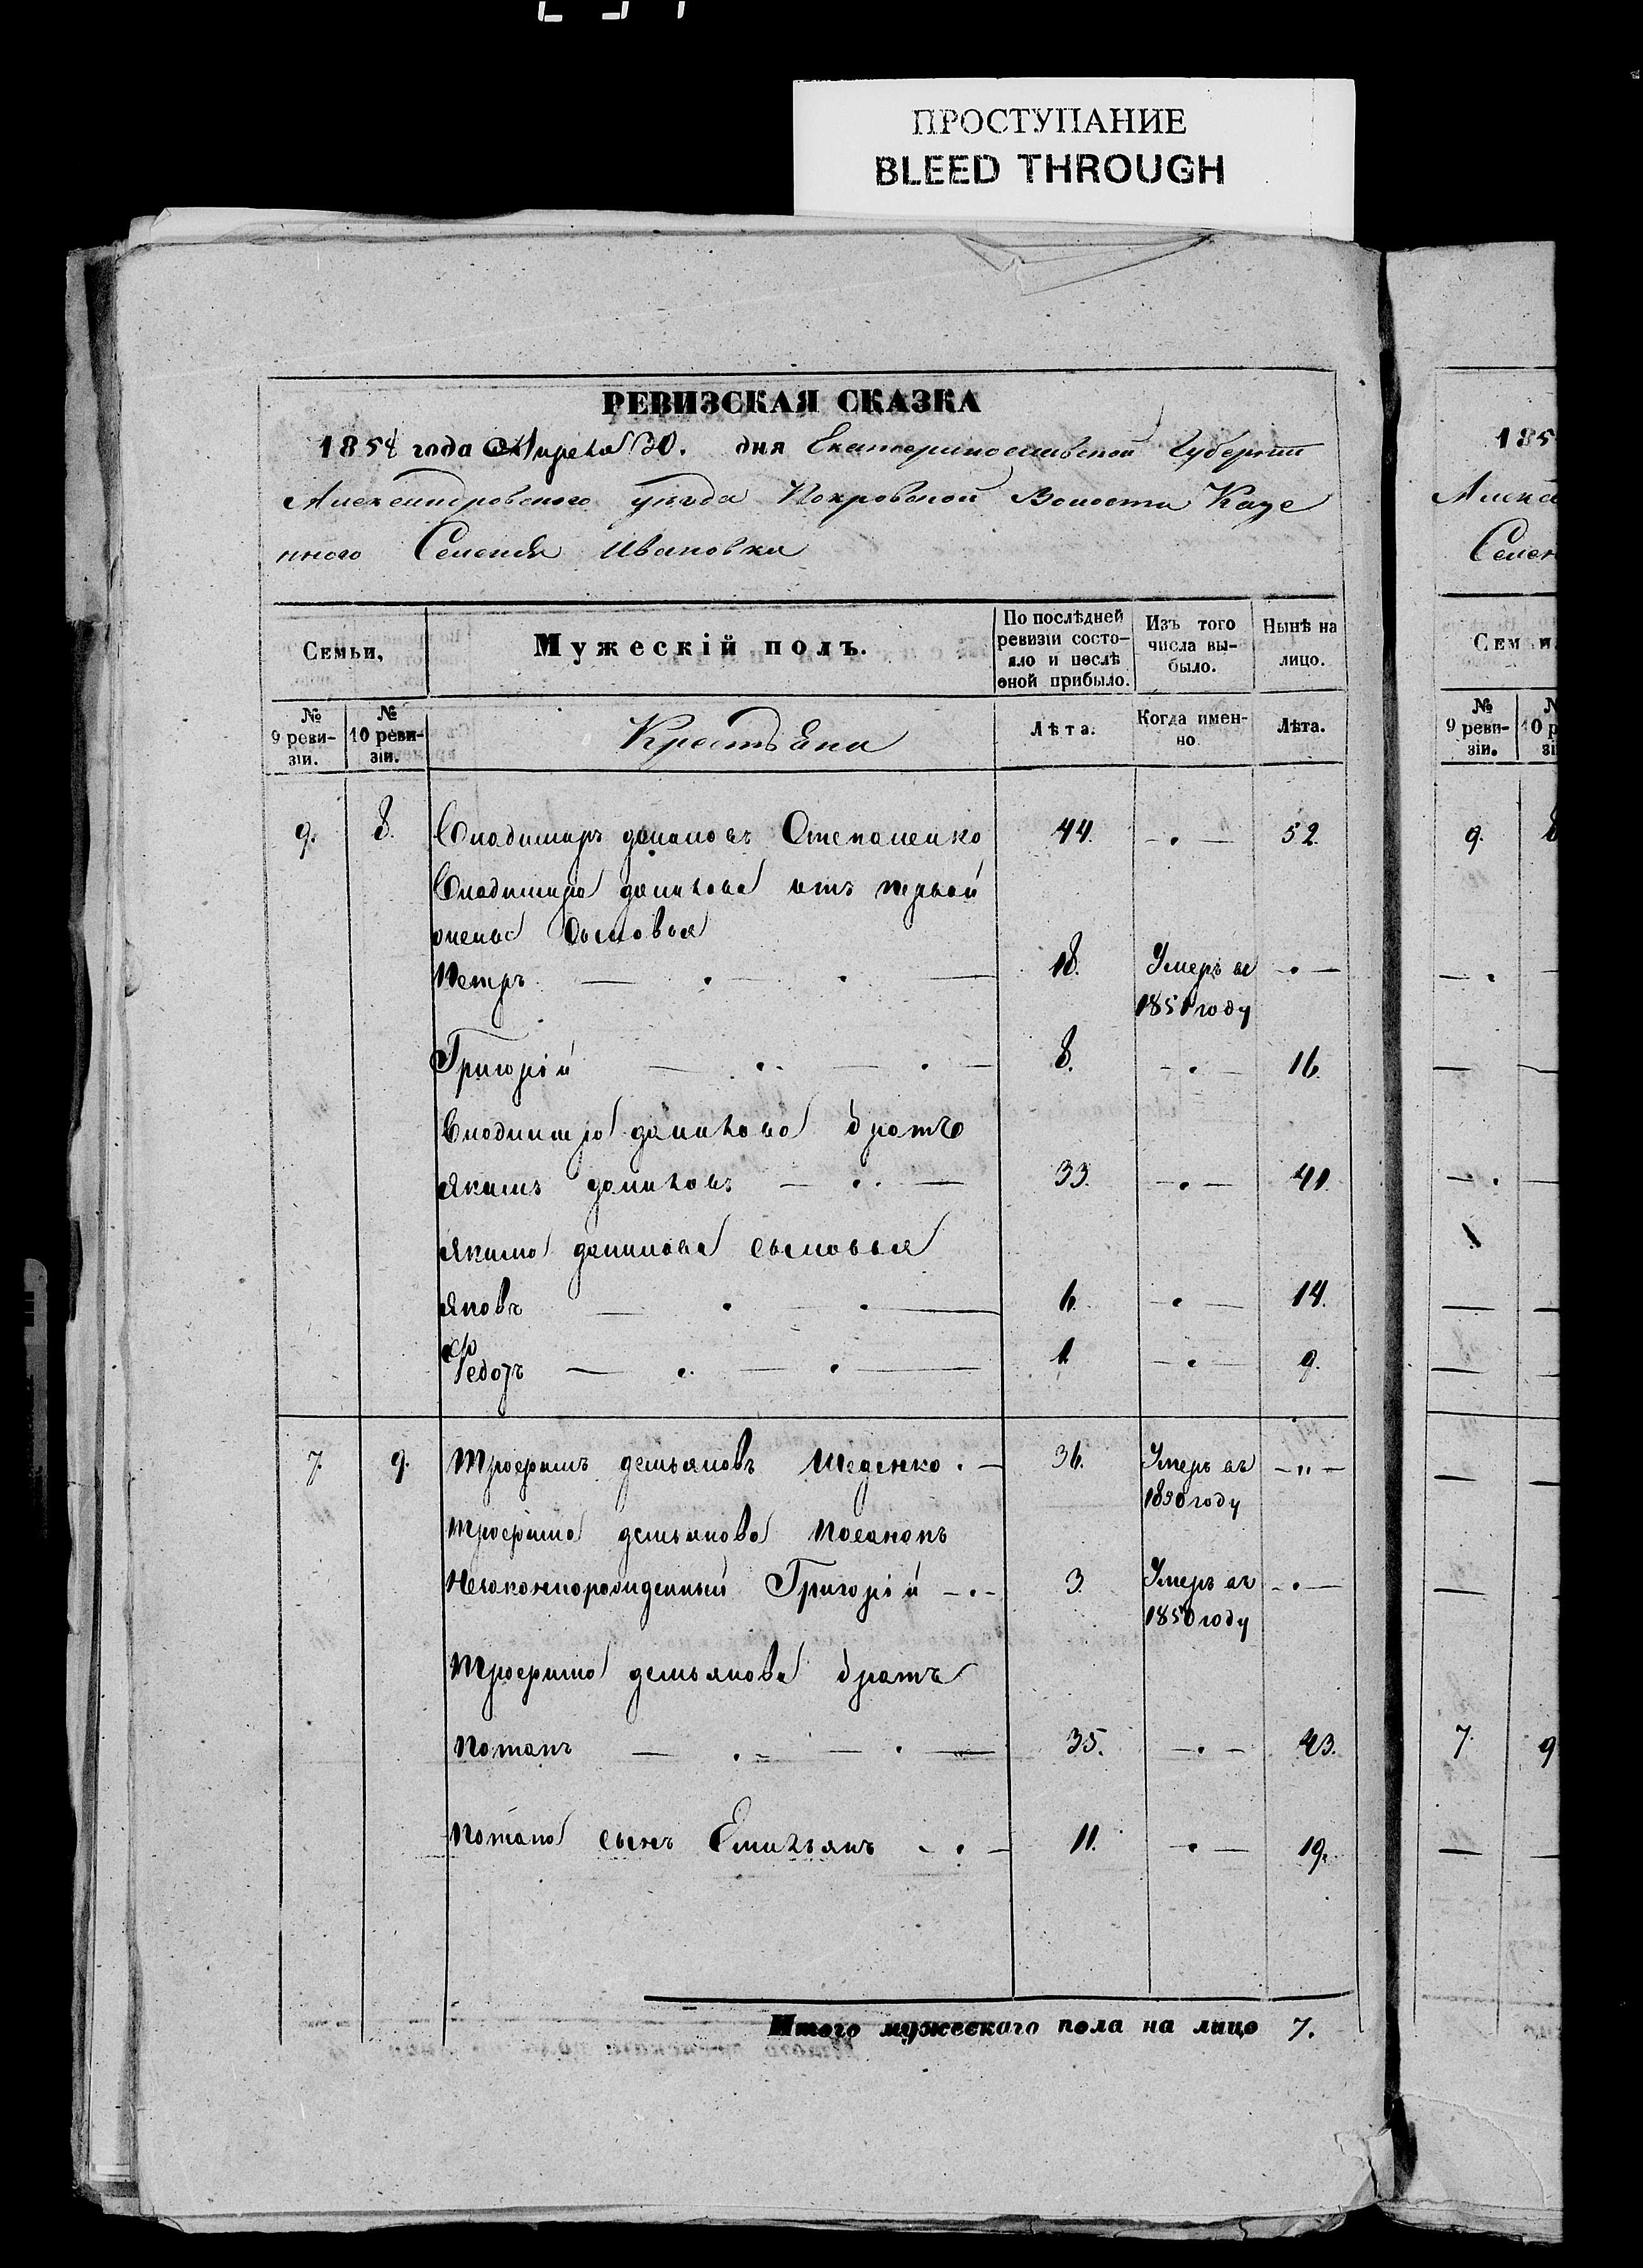 ПРОСТУПАНИЕ
BLEED THROUGH
РЕВИЗСКАЯ СКАЗКА
1858 года Апреля 30. дня Екатеринославской Губернии
Александровского уезда Покровской Волости Казе
нного Селения Ивановки
Семьи,
Мужескій полъ.
По послѣдней ревизіи состо-
яло и послѣ
оной прибыло.
Изъ того
числа вы-
было.
Нынѣ на
лицо.
№ 9 реви-
зіи.
№ 10 реви-
зіи.
Крестьяна
Лѣта.
Когда имен-
но
Лѣта.
9. 8. Владимиръ даниловъ Степаненко 44. — 52.
Владимира данилова отъ первой
жены Сыновья
Петръ — 18. Умеръ въ —
1851 году
Григорій — 8. — 16.
Владимира данилова братъ
Якимъ даниловъ — 33. — 41.
Якима данилова сыновья
Яковъ — 6. — 14.
Федоръ — 1. — 9.
7. 9. Трофимъ демьяновъ Шеденко. — 36. Умеръ въ —
1850 году
Трофима демьянова
Незаконнорожденный Григорій — 3. Умеръ въ —
1850 году
Трофима демьянова братъ
Потапъ — 35. — 43.
Потапа сынъ Емильянъ — 11. — 19.
Итого мужескаго пола на лицо 7.
185
Алекса
Селен
Семьи
№ 9 реви-
зіи.
9.
7. 9